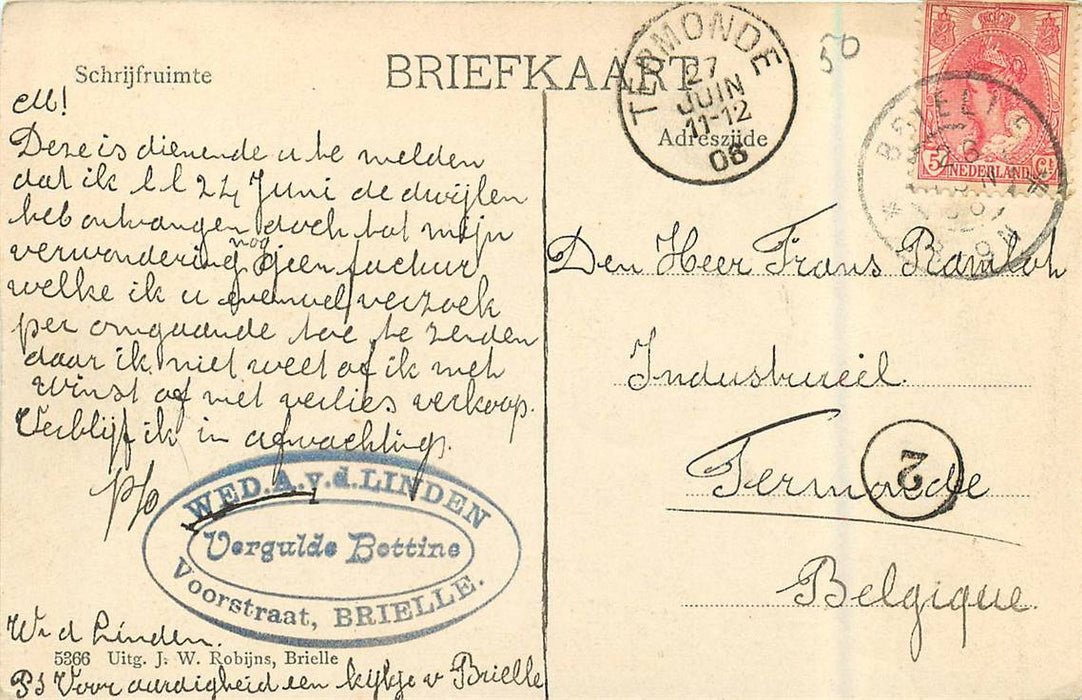 Schrijfruimte
BRIEFKAART
Adreszijde
TERMONDE
27
JUIN
11-12
06
50
5
Ct
NEDERLAND
26
2
M!
Deze is dienende u te melden
dat ik l l 24 Juni de dwijlen
heb ontvangen doch tot mijn
verwondering nog geen factuur
welke ik u evenwel verzoek
per omgaande toe te zenden
daar ik niet weet of ik met
winst of met verlies verkoop.
Verblijf ik in afwachting.
p/o
WED. A. v. d. LINDEN
Vergulde Bottine
Voorstraat, BRIELLE.
W v d Linden.
5366 Uitg. J. W. Robijns, Brielle
PS Voor aardigheid een kijkje v Brielle
Den Heer Frans Ramloh
Industrieil.
Termonde
Belgique.